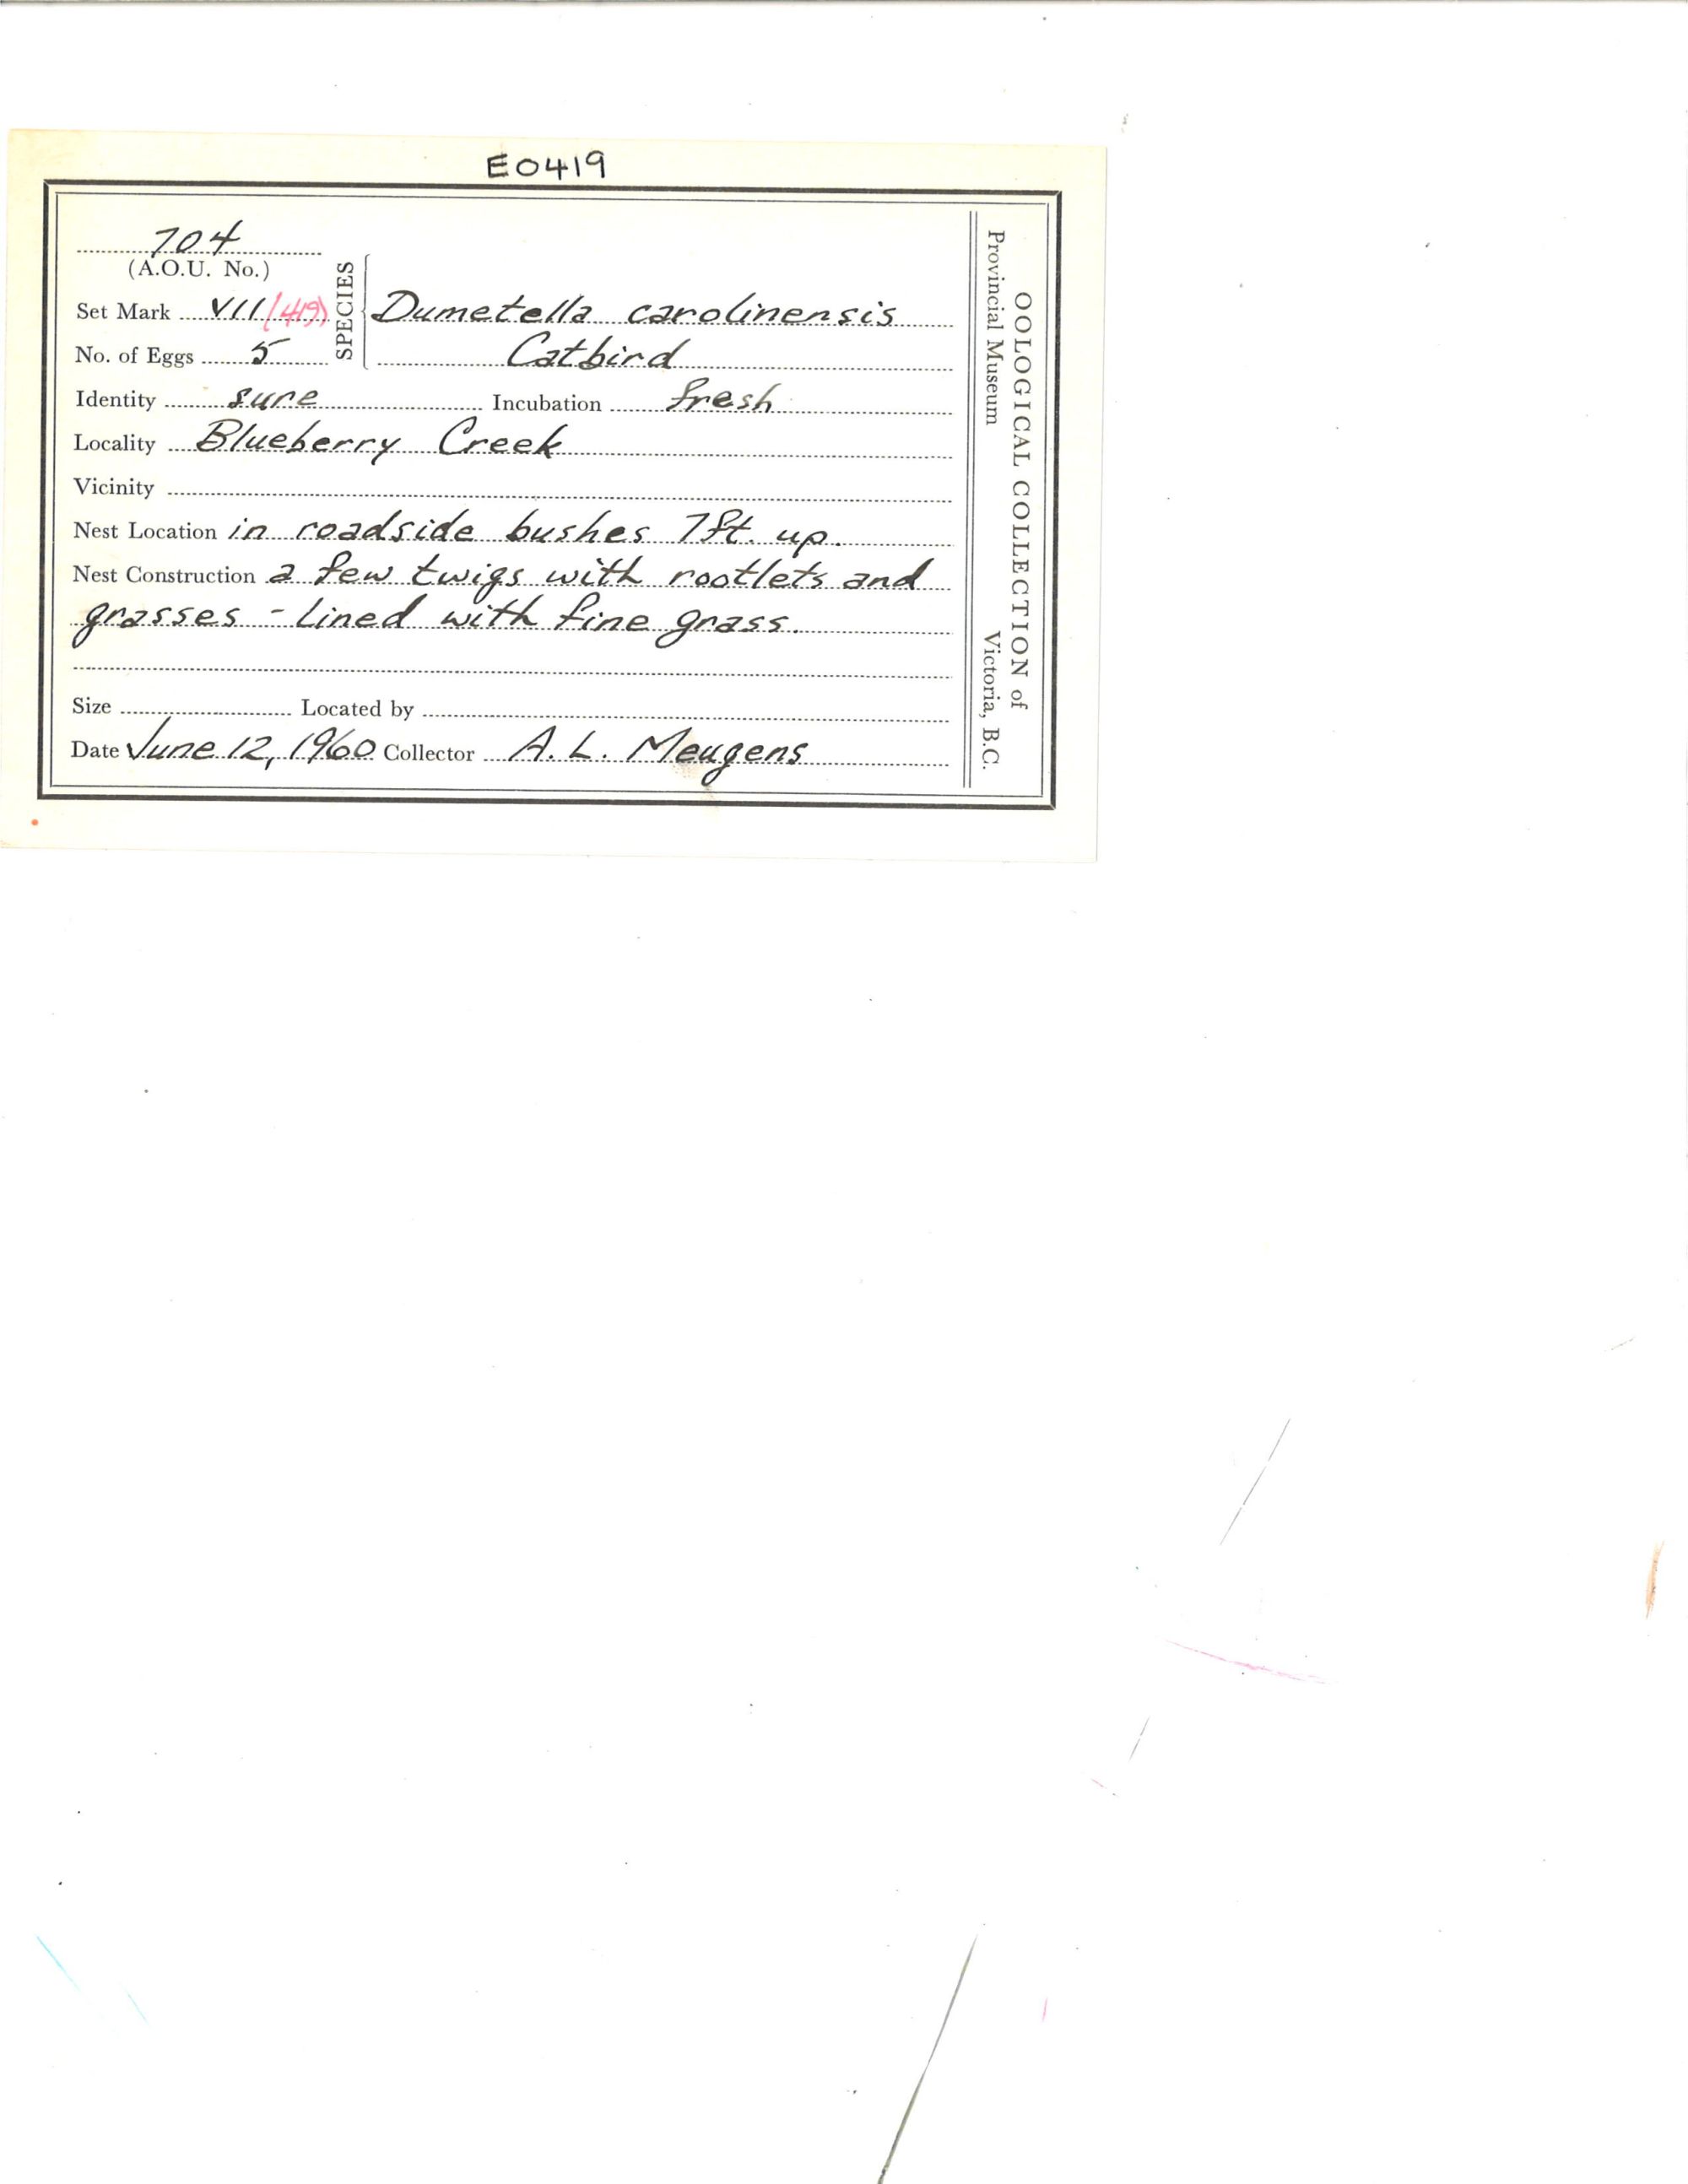 E0419
704
(A.O.U. No.)
Set Mark VII (419)
No. of Eggs 5
SPECIES
Dumetella carolinensis
Catbird
Identity sure Incubation fresh
Locality Blueberry Creek
Vicinity
Nest Location in roadside bushes 7ft. up.
Nest Construction a few twigs with rootlets and
grasses - lined with fine grass.
Size Located by
Date June 12, 1960 Collector A. L. Meugens
OOLOGICAL COLLECTION of
Provincial Museum Victoria, B.C.